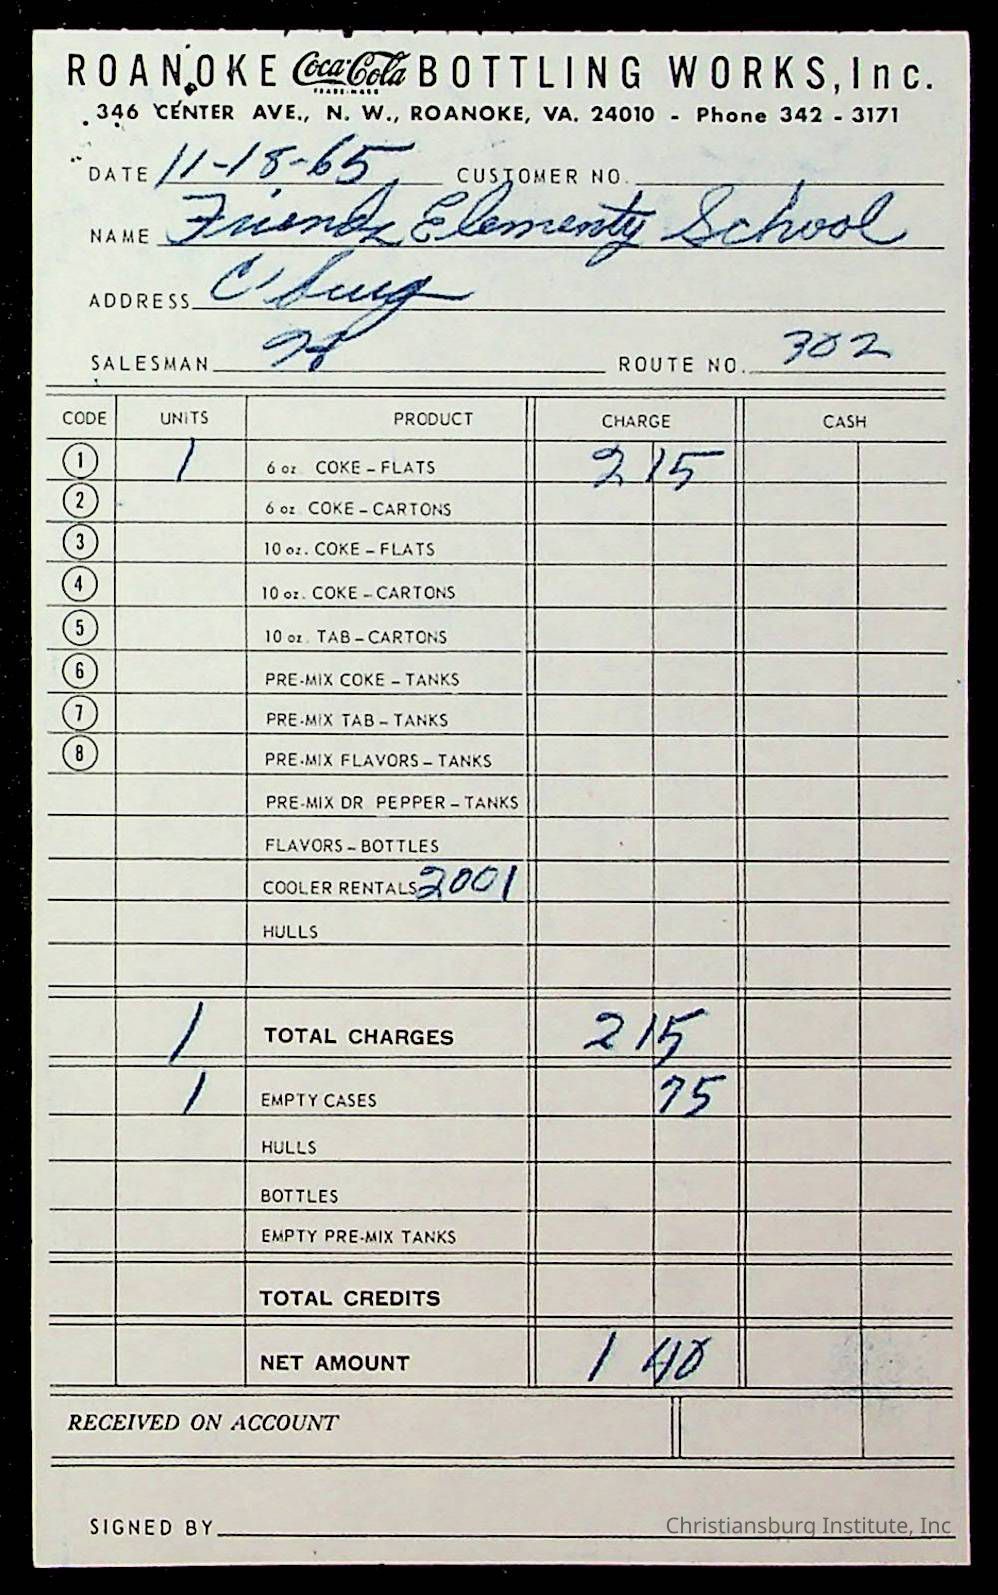 ROANOKE Coca-Cola BOTTLING WORKS, Inc.
TRADE-MARK
346 CENTER AVE., N. W., ROANOKE, VA. 24010 - Phone 342 - 3171
DATE 11-18-65 CUSTOMER NO.
NAME Friends Elementy School
ADDRESS C'burg
SALESMAN ROUTE NO. 302
CODE UNITS PRODUCT CHARGE CASH
1 1 6 oz. COKE – FLATS 2 15
2 6 oz. COKE – CARTONS
3 10 oz. COKE – FLATS
4 10 oz. COKE – CARTONS
5 10 oz. TAB – CARTONS
6 PRE-MIX COKE – TANKS
7 PRE-MIX TAB – TANKS
8 PRE-MIX FLAVORS – TANKS
PRE-MIX DR PEPPER – TANKS
FLAVORS – BOTTLES
COOLER RENTALS 2001
HULLS
1 TOTAL CHARGES 2 15
1 EMPTY CASES 75
HULLS
BOTTLES
EMPTY PRE-MIX TANKS
TOTAL CREDITS
NET AMOUNT 1 40
RECEIVED ON ACCOUNT
SIGNED BY
Christiansburg Institute, Inc